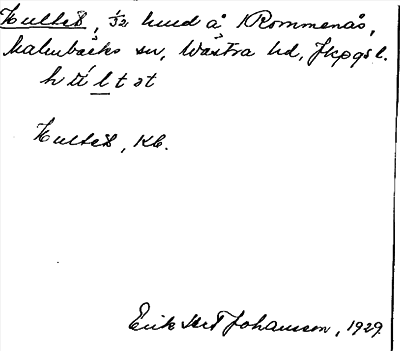 Hultet, 1/32 hmd å Rommenås,
Malmbäcks sn, Västra hd, Jkpgs l.
Hultet, Kb.
Erik Johansson, 1929.